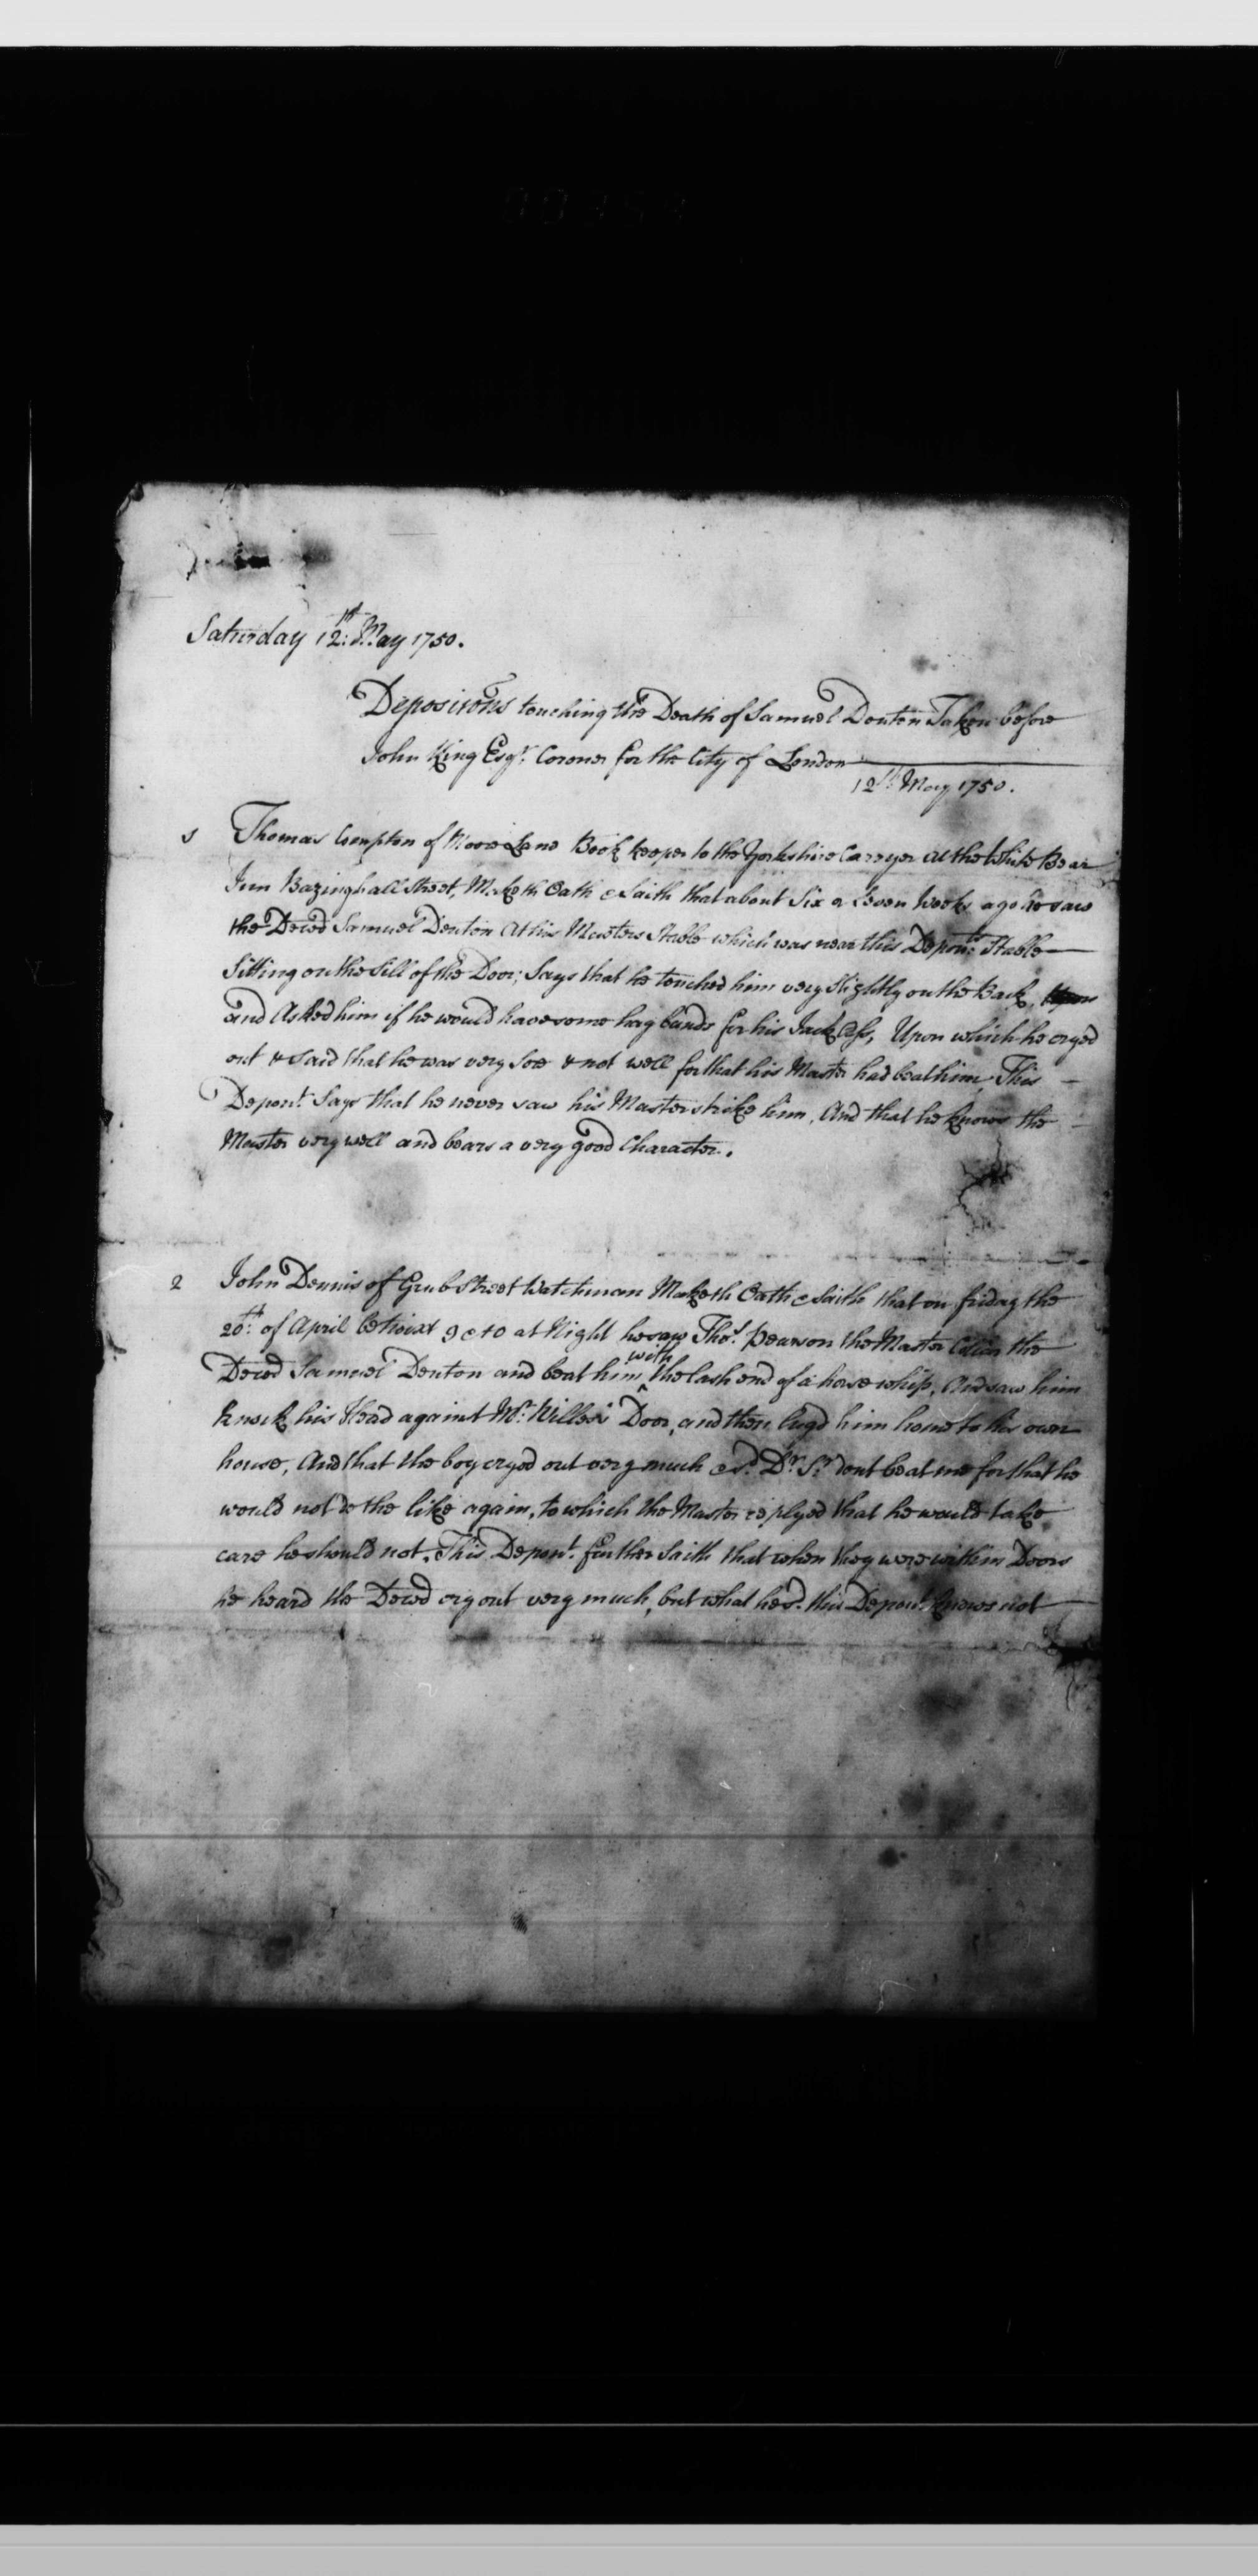 Saturday 12th: May 1750.
Depositõns touching the Death of Samuel Denton Taken before
John King Esqr. Coroner for the City of London
12th: May 1750.
1 Thomas Compton of Moore Lane Book keeper to the Yorkshire Carryer at the White Bear
Inn Bazinghall Street, Maketh Oath & Saith that about Six or Seven Weeks ago he saw
the Deced Samuel Denton At his Masters Stable which was near this Deponts. Stable
Sitting on the Sill of the Door; Says that he touched him very Slightly on the Back,
and Asked him if he would have some hay bands for his Jack Ass, Upon which he cryed
out & said that he was very Sore & not well for that his Master had beat him, This
Depont. Says that he never saw his Master strike him, And that he knows the
Master very well and bears a very good Character.
2 John Dennis of Grub Street Watchman Maketh Oath & Saith that on friday the
20th: of April betwixt 9 & 10 at Night he saw Thos. Pearson the Master Collar the
Deced Samuel Denton and beat him with the lash end of a horse whip, And saw him
knock his Head against Mr. Willes's Door, and then lugd him home to his own
house, And that the boy cryed out very much & sd. Dr. Sr. dont beat me for that he
would not do the like again, to which the Master replyed that he would take
care he should not. This Depont. further Saith that when they were within Doors
he heard the Deced cry out very much, but what he sd. this Depont. knows not